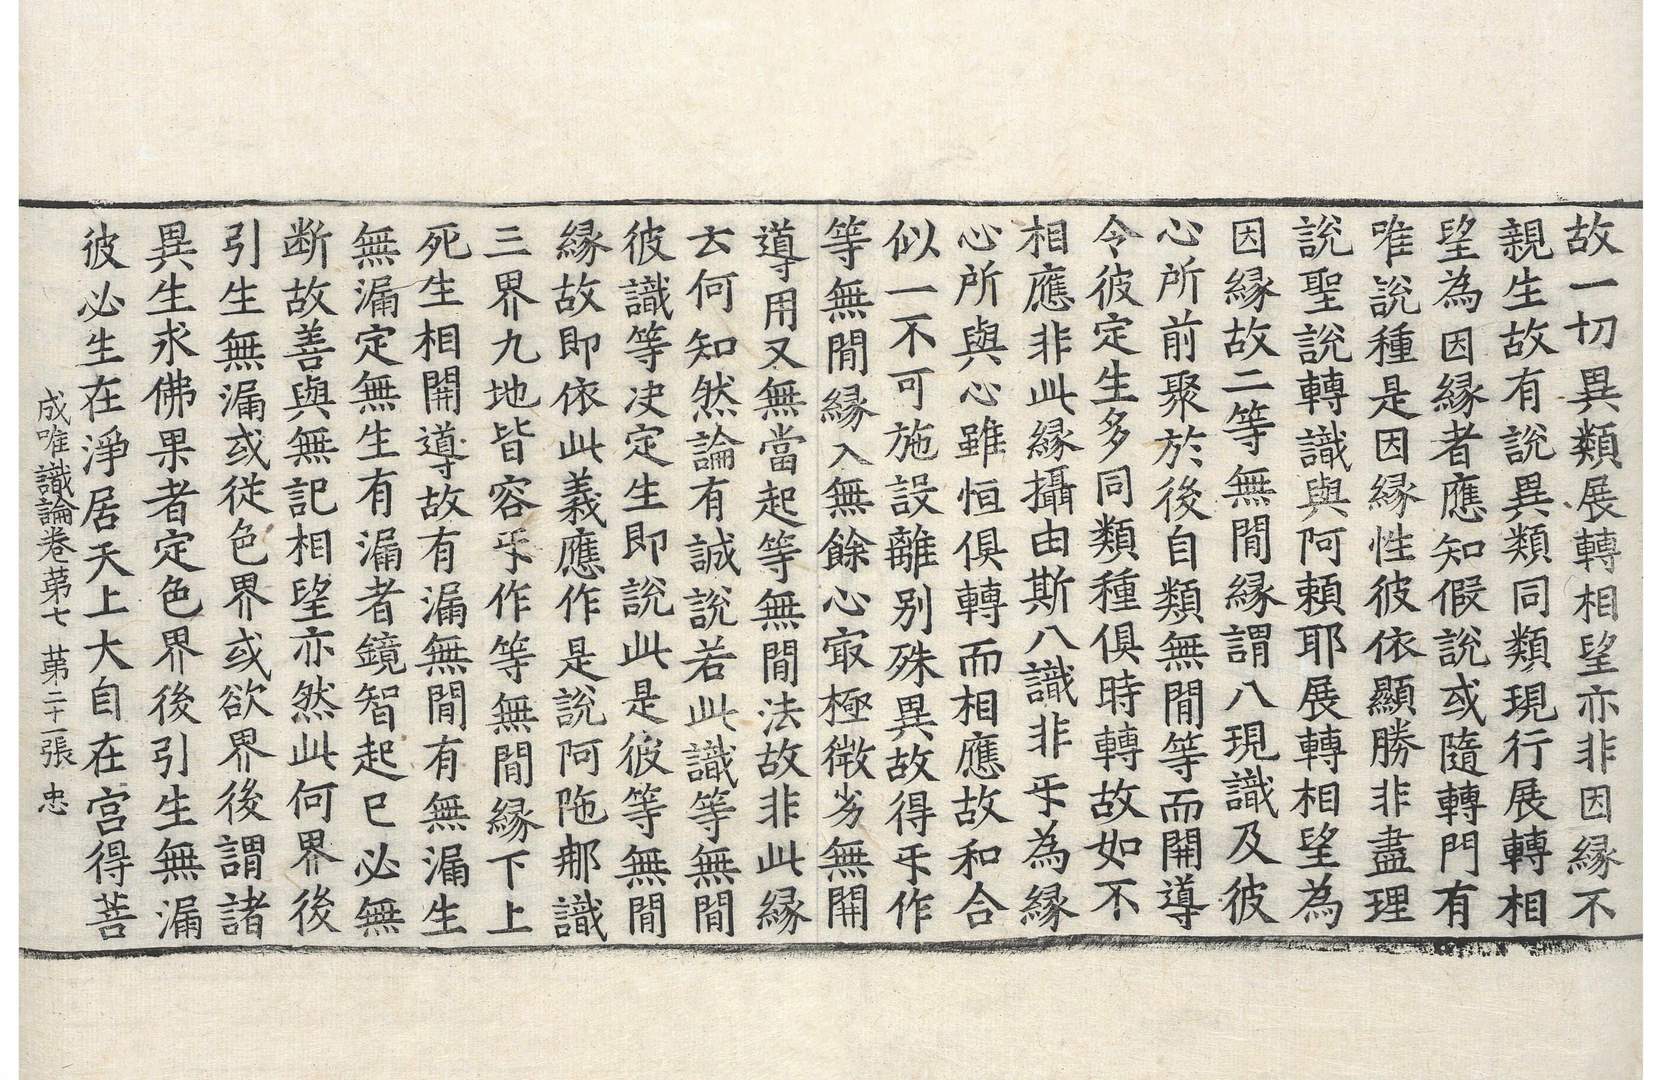 故一切異類展轉相望亦非因縁不
親生故有說異類同類現行展轉相
望為因縁者應知假說或隨轉門有
唯說種是因縁性彼依顯勝非盡理
說聖說轉識與阿頼耶展轉相望為
因縁故二等無間縁謂八現識及彼
心所前聚於後自類無間等而開導
令彼定生多同類種俱時轉故如不
相應非此縁攝由斯八識非㸦為縁
心所與心雖恒俱轉而相應故和合
似一不可施設離別殊異故得㸦作
等無間縁入無餘心㝡極微劣無開
導用又無當起等無間法故非此縁
云何知然論有誠說若此識等無間
彼識等決定生即說此是彼等無間
縁故即依此義應作是說阿陁那識
三界九地皆容㸦作等無間縁下上
死生相開導故有漏無間有無漏生
無漏定無生有漏者鏡智起已必無
断故善與無記相望亦然此何界後
引生無漏或從色界或欲界後謂諸
異生求佛果者定色界後引生無漏
彼必生在淨居天上大自在宮得菩
成唯識論卷苐七 苐二十一張 忠